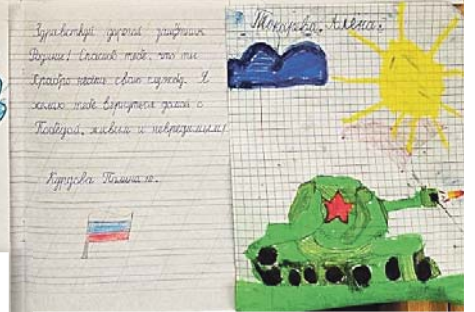 Здравствуй дорогой защитник
Родины! Спасибо тебе, что ты
храбро несёшь свою службу. Я
желаю тебе вернуться домой с
Победой, живым и невредимым!
Курдова Полина
Токарева Алёна.